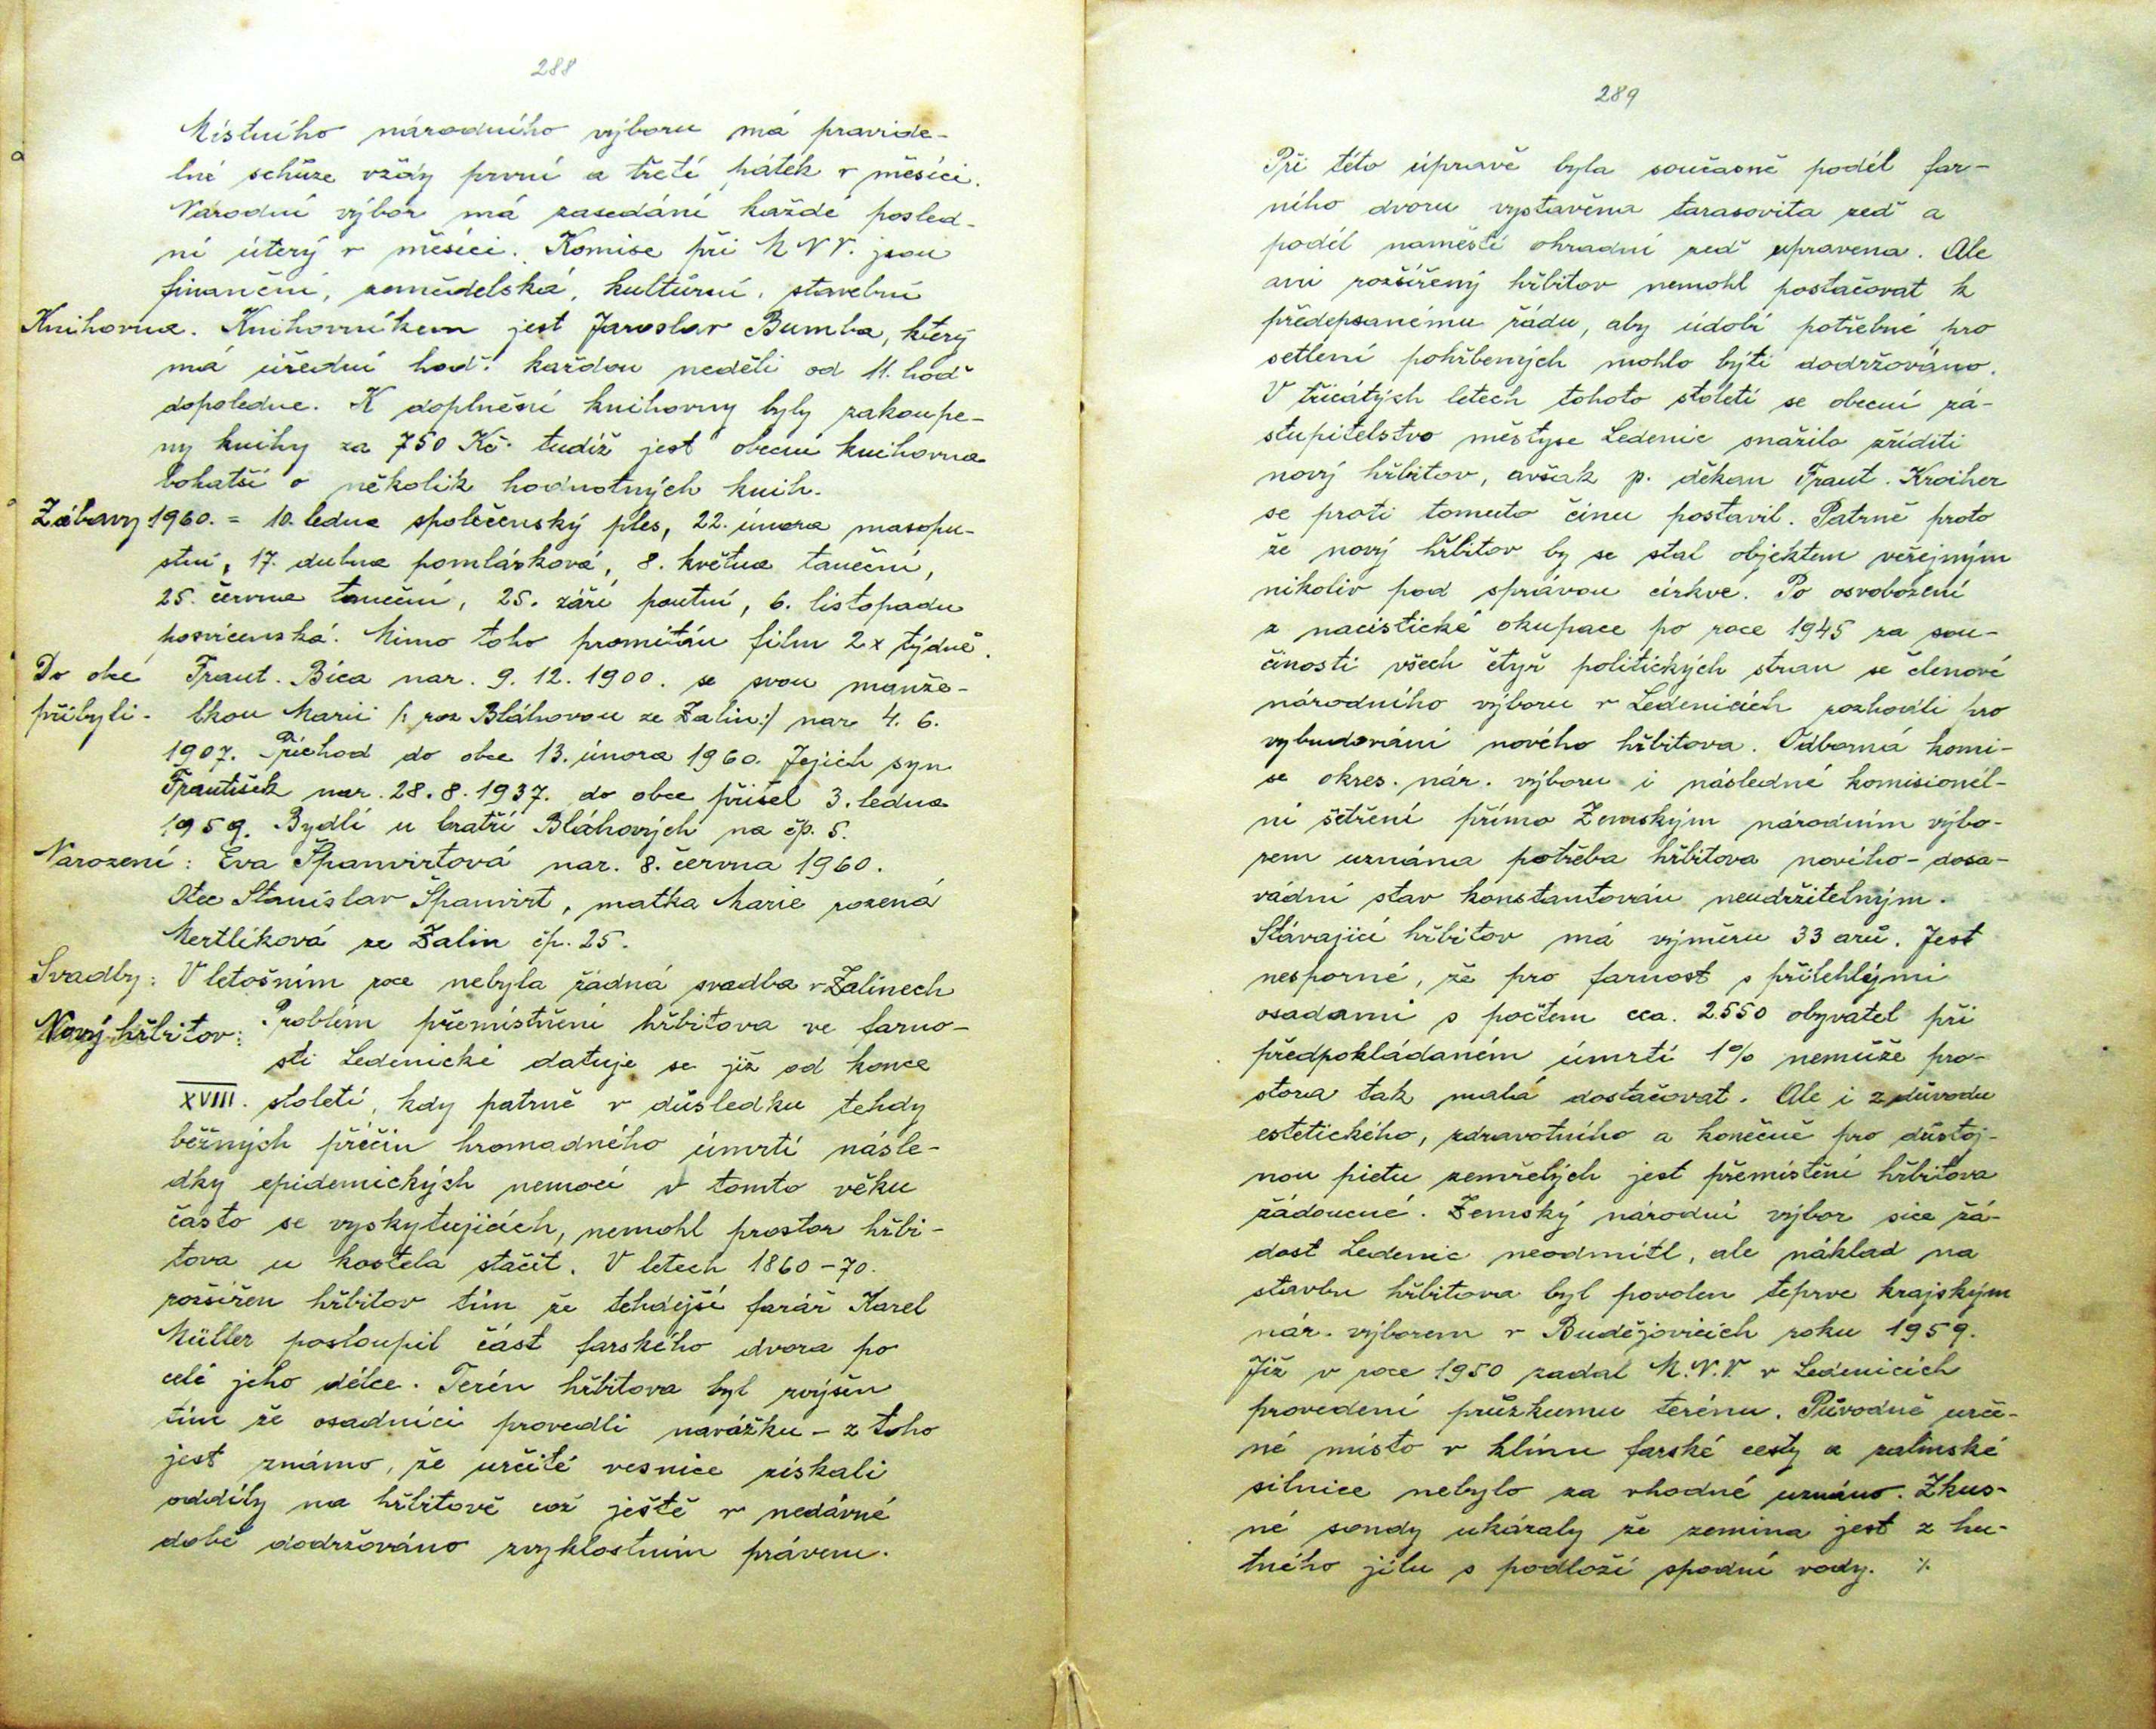 288
Místního národního výboru má pravide-
lné schůze vždy první a třetí pátek v měsíci.
Národní výbor má zasedání každé posled-
ní úterý v měsíci. Komise při M N V. jsou
finanční, zemědelská, kulturní, stavební
Knihovna. Knihovníkem jest Jaroslav Bumba, který
má úřední hod. každou neděli od 11. hod
dopoledne. K doplnění knihovny byly zakoupe-
ny knihy za 750 Kč. tudíž jest obecní knihovna
bohatší o několik hodnotných knih.
Zábavy 1960. = 10. ledna společenský ples, 22. února masopu-
stní, 17. dubna pomlásková, 8. května taneční,
25. června taneční, 25. září poutní, 6. listopadu
posvícenská. Mimo toho promítán film 2x týdně.
Do obc Frant. Bíca nar. 9. 12. 1900. se svou manže-
přibyli. lkou Marií /: roz Bláhovou ze Zalin:/ nar 4. 6.
1907. Příchod do obce 13. února 1960. Jejich syn
František nar. 28. 8. 1937. do obce přišel 3. ledna
1959. Bydlí u bratří Bláhových na čp. 5.
Narození: Eva Španvirtová nar. 8. června 1960.
Otec Stanislav Španvirt, matka Marie rozená
Mertlíková ze Zalin čp. 25.
Svadby: V letošním roce nebyla žádná svadba v Zalinech
Nový hřbitov: Problém přemístnění hřbitova ve farno-
sti Ledenické datuje se již od konce
XVIII. století, kdy patrně v důsledku tehdy
běžných příčin hromadného úmrtí násle-
dky epidemických nemocí v tomto věku
často se vyskytujících, nemohl prostor hřbi-
tova u kostela stačit. V letech 1860-70.
rozšířen hřbitov tím že tehdejší farář Karel
Müller postoupil část farského dvora po
celé jeho délce. Terén hřbitova byl zvýšen
tím že osadníci provedli navážku - z toho
jest známo, že určité vesnice získali
oddíly na hřbitově což ještě v nedávné
době dodržováno zvyklostním právem.
289
Při této úpravě byla současně podél far-
ního dvoru vystavěna tarasovita zeď a
podél naměstí ohradní zeď upravena. Ale
ani rozšířený hřbitov nemohl postačovat k
předepsanému řádu, aby údobí potřebné pro
setlení pohřbených mohlo býti dodržováno.
V třicátých letech tohoto století se obecní zá-
stupitelstvo městyse Ledenic snažilo zříditi
nový hřbitov, avšak p. děkan Frant. Kroiher
se proti tomuto činu postavil. Patrně proto
že nový hřbitov by se stal objektem veřejným
nikoliv pod správou církve. Po osvobození
z nacistické okupace po roce 1945 za sou-
činosti všech čtyř politických stran se členové
národního výboru v Ledenicích rozhodli pro
vybudování nového hřbitova. Odborná komi-
se okres. nár. výboru i následné komisionél-
ní šetření přímo Zemským národním výbo-
rem uznána potřeba hřbitova nového - dosa-
vádní stav konstantován neudržitelným.
Stávající hřbitov má výměru 33 arů. Jest
nesporné, že pro farnost s přilehlými
osadami s počtem cca. 2.550 obyvatel při
předpokládaném úmrtí 1% nemůže pro-
stora tak malá dostačovat. Ale i z důvodu
estetického, zdravotního a konečně pro důstoj-
nou pietu zemřelých jest přemístění hřbitova
žádoucné. Zemský národní výbor sice žá-
dost Ledenic neodmítl, ale náklad na
stavbu hřbitova byl povolen teprve krajským
nár. výborem v Budějovicích roku 1959.
Již v roce 1950 zadal M.N.V. v Ledenicích
provedení průzkumu terénu. Původně urče-
né místo v klínu farské cesty a zalinské
silnice nebylo za vhodné uznáno. Zkus-
né sondy ukázaly že zemina jest z hu-
tného jílu s podloží spodní vody. ·/.